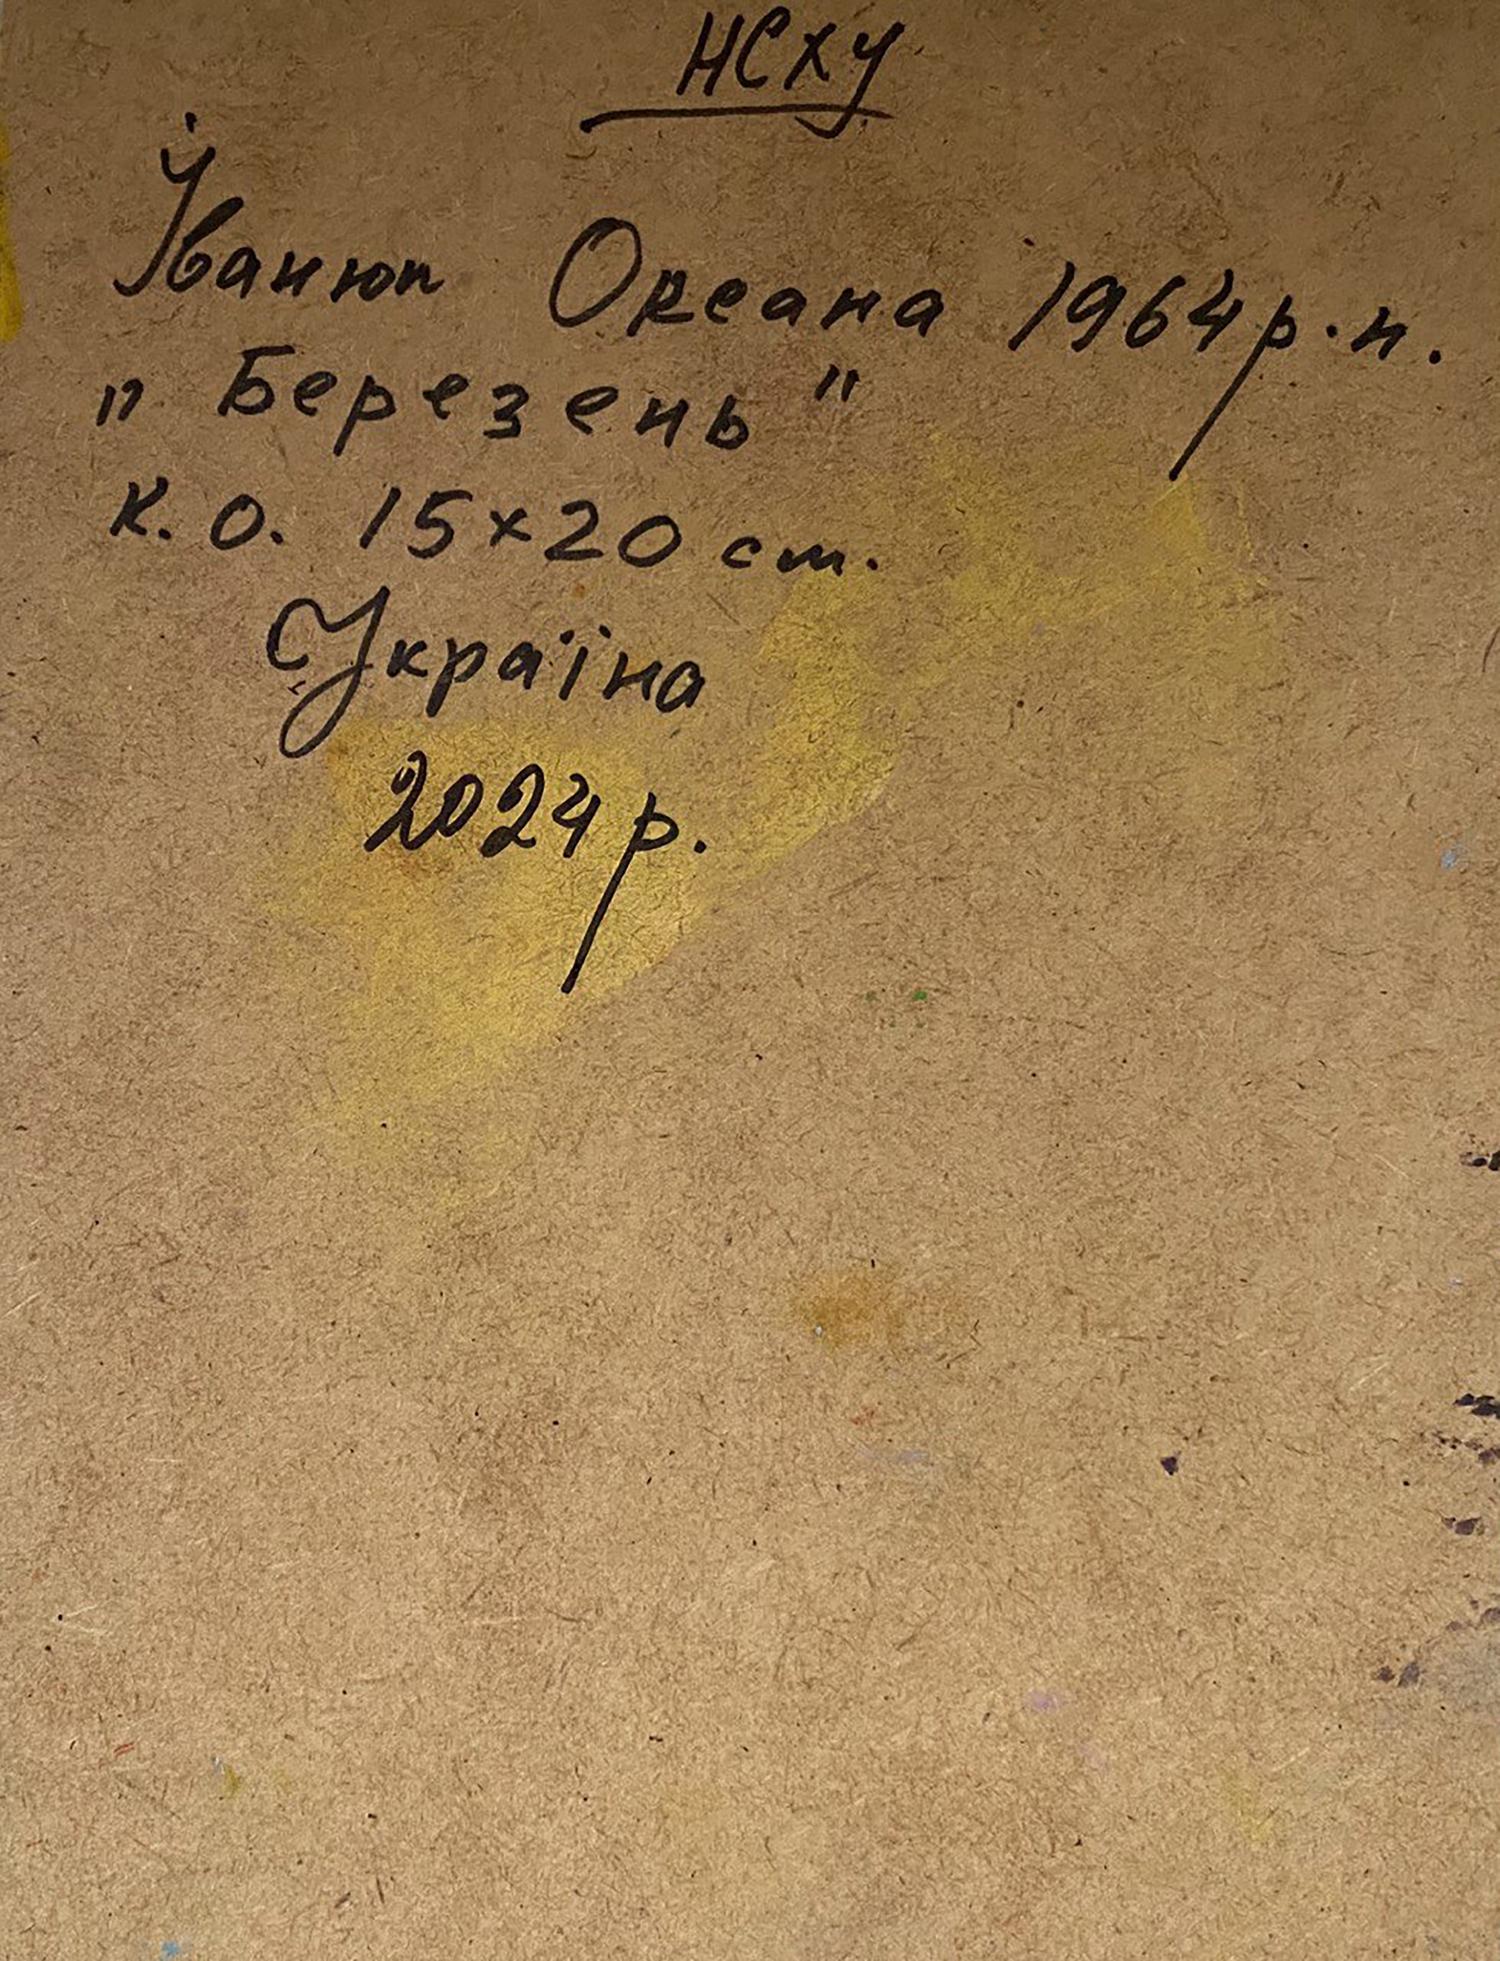 НСХУ
Іванюк Океана 1964 р.н.
„Березень"
К. О. 15×20 см.
Україна
2024 р.